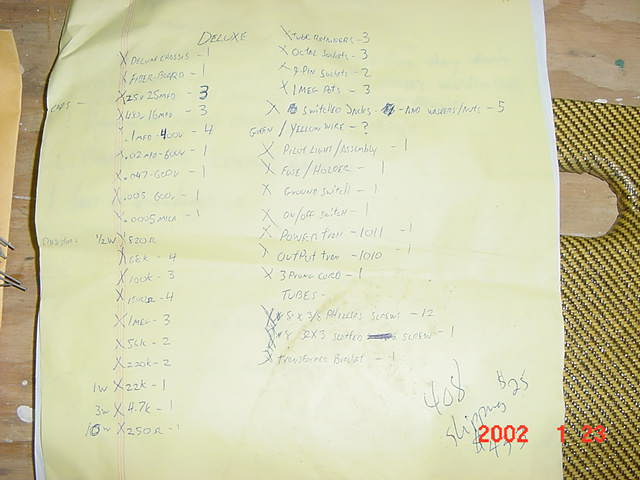 DELUXE
X DELUXE CHASSIS - 1
X FIBER-BOARD - 1
CAPS - X 25V 25MFD - 3
X 450, 16MFD - 3
X .1 MFD - 400V - 4
X .02 MFD - 600V - 1
X .047-600V - 1
X .005 600V - 1
X .0005 MICA - 1
1/2W X 820R
X 68K - 4
X 100K - 3
X 1500R - 4
X 1MEG - 3
X 56K - 2
X 220K - 2
1W X 22K - 1
3W X 4.7K - 1
10W X 250R - 1
X TUBE RETAINERS - 3
X OCTAL SOCKETS - 3
X 9-PIN SOCKETS - 2
X 1 MEG POTS - 3
X SWITCHED JACKS - AND WASHERS/NUTS - 5
GREEN / YELLOW WIRE - ?
X PILOT LIGHT / ASSEMBLY - 1
X FUSE / HOLDER - 1
X GROUND SWITCH - 1
X ON/OFF SWITCH - 1
X POWER TRAN - 1011 - 1
X OUTPUT TRAN - 1010 - 1
X 3 PRONG CORD - 1
TUBES -
X #8 X 3/8 PHILLIPS SCREWS - 12
SLOTTED SCREW - 1
X TRANSFORMER BRACKET - 1
408 $25
shipping
2002 1 23